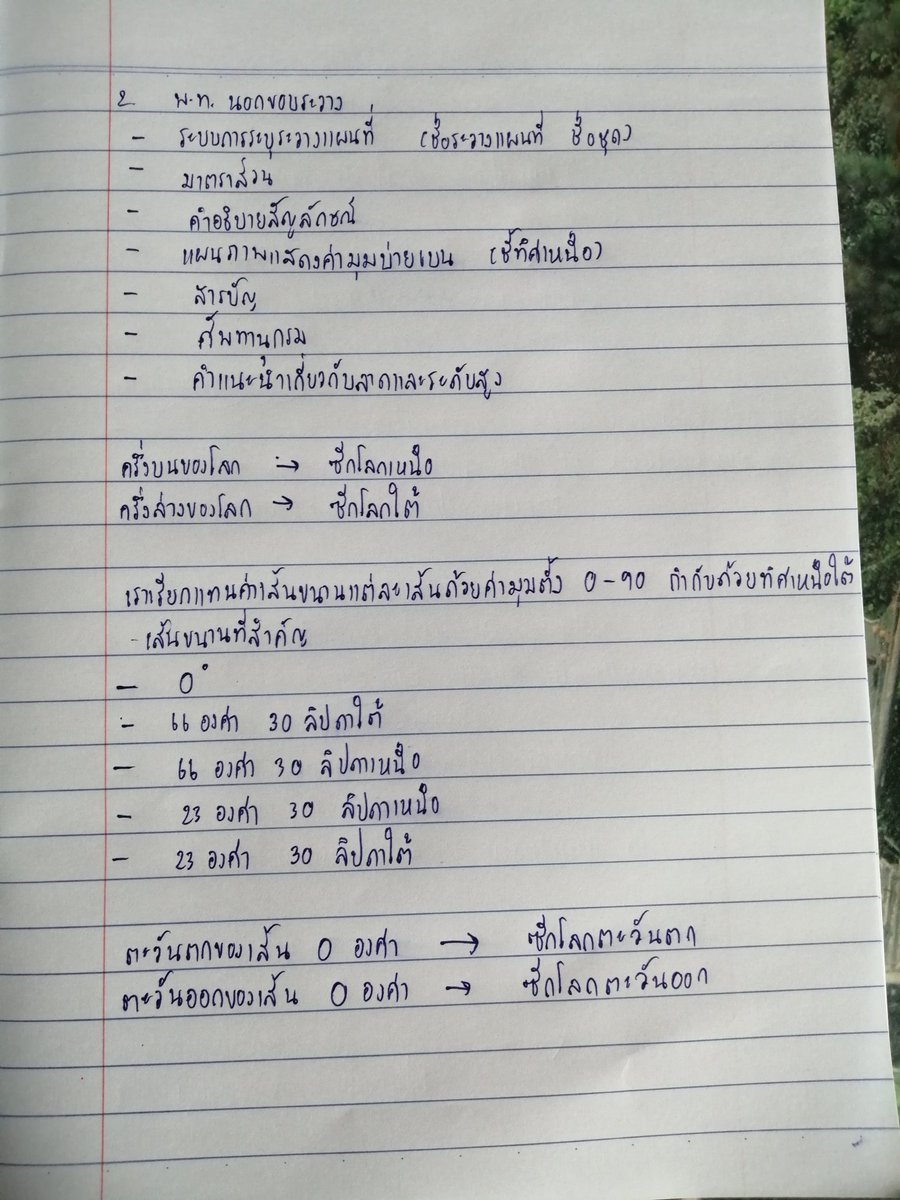 2 พ.ท. นอกขอบระวาง
- ระบบการระบุระวางแผนที่ (ชื่อระวางแผนที่ ชื่อชุด)
- มาตราส่วน
- คำอธิบายสัญลักษณ์
- แผนภาพแสดงค่ามุมบ่ายเบน (ชี้ทิศเหนือ)
- สารบัญ
- ศัพทานุกรม
- คำแนะนำเกี่ยวกับลาดและระดับสูง
ครึ่งบนของโลก → ซีกโลกเหนือ
ครึ่งล่างของโลก → ซีกโลกใต้
เราเรียกแทนค่าเส้นขนานแต่ละเส้นด้วยค่ามุมตั้ง 0-90 กำกับด้วยทิศเหนือใต้
- เส้นขนานที่สำคัญ
- 0°
- 66 องศา 30 ลิปดาใต้
- 66 องศา 30 ลิปดาเหนือ
- 23 องศา 30 ลิปดาเหนือ
- 23 องศา 30 ลิปดาใต้
ตะวันตกของเส้น 0 องศา → ซีกโลกตะวันตก
ตะวันออกของเส้น 0 องศา → ซีกโลกตะวันออก